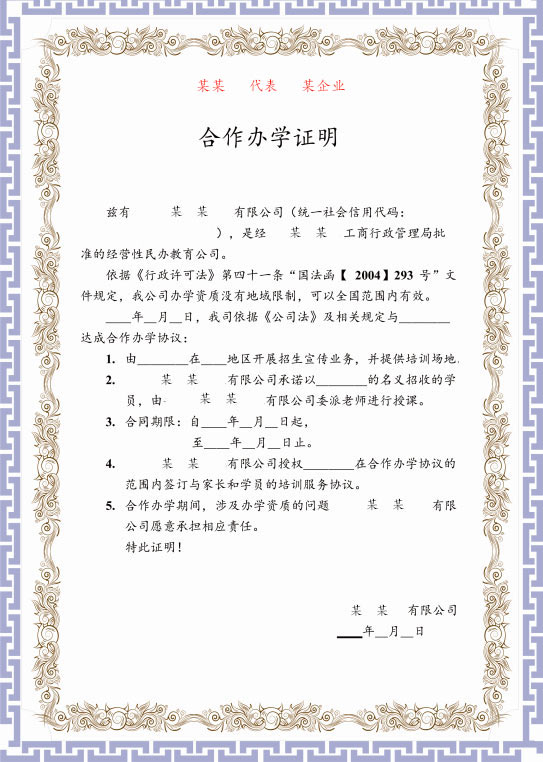 某某 代表 某企业
合作办学证明
兹有 某 某 有限公司（统一社会信用代码：
），是经 某 某 工商行政管理局批
准的经营性民办教育公司。
依据《行政许可法》第四十一条“国法函【 2004】293 号”文
件规定，我公司办学资质没有地域限制，可以全国范围内有效。
____年__月__日，我司依据《公司法》及相关规定与________
达成合作办学协议：
1. 由________在____地区开展招生宣传业务，并提供培训场地.
2. 某 某 有限公司承诺以________的名义招收的学
员，由 某 某 有限公司委派老师进行授课。
3. 合同期限：自____年__月__日起，
至____年__月__日止。
4. 某 某 有限公司授权________在合作办学协议的
范围内签订与家长和学员的培训服务协议。
5. 合作办学期间，涉及办学资质的问题 某 某 有限
公司愿意承担相应责任。
特此证明！
某 某 有限公司
____年__月__日